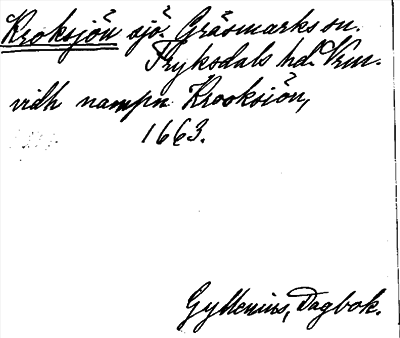 Kroksjön sjö. Gräsmarks sn.
Fryksdals hd. Vrm.
vidh nampn Krooksiön,
1663.
Gyllenius, Dagbok.